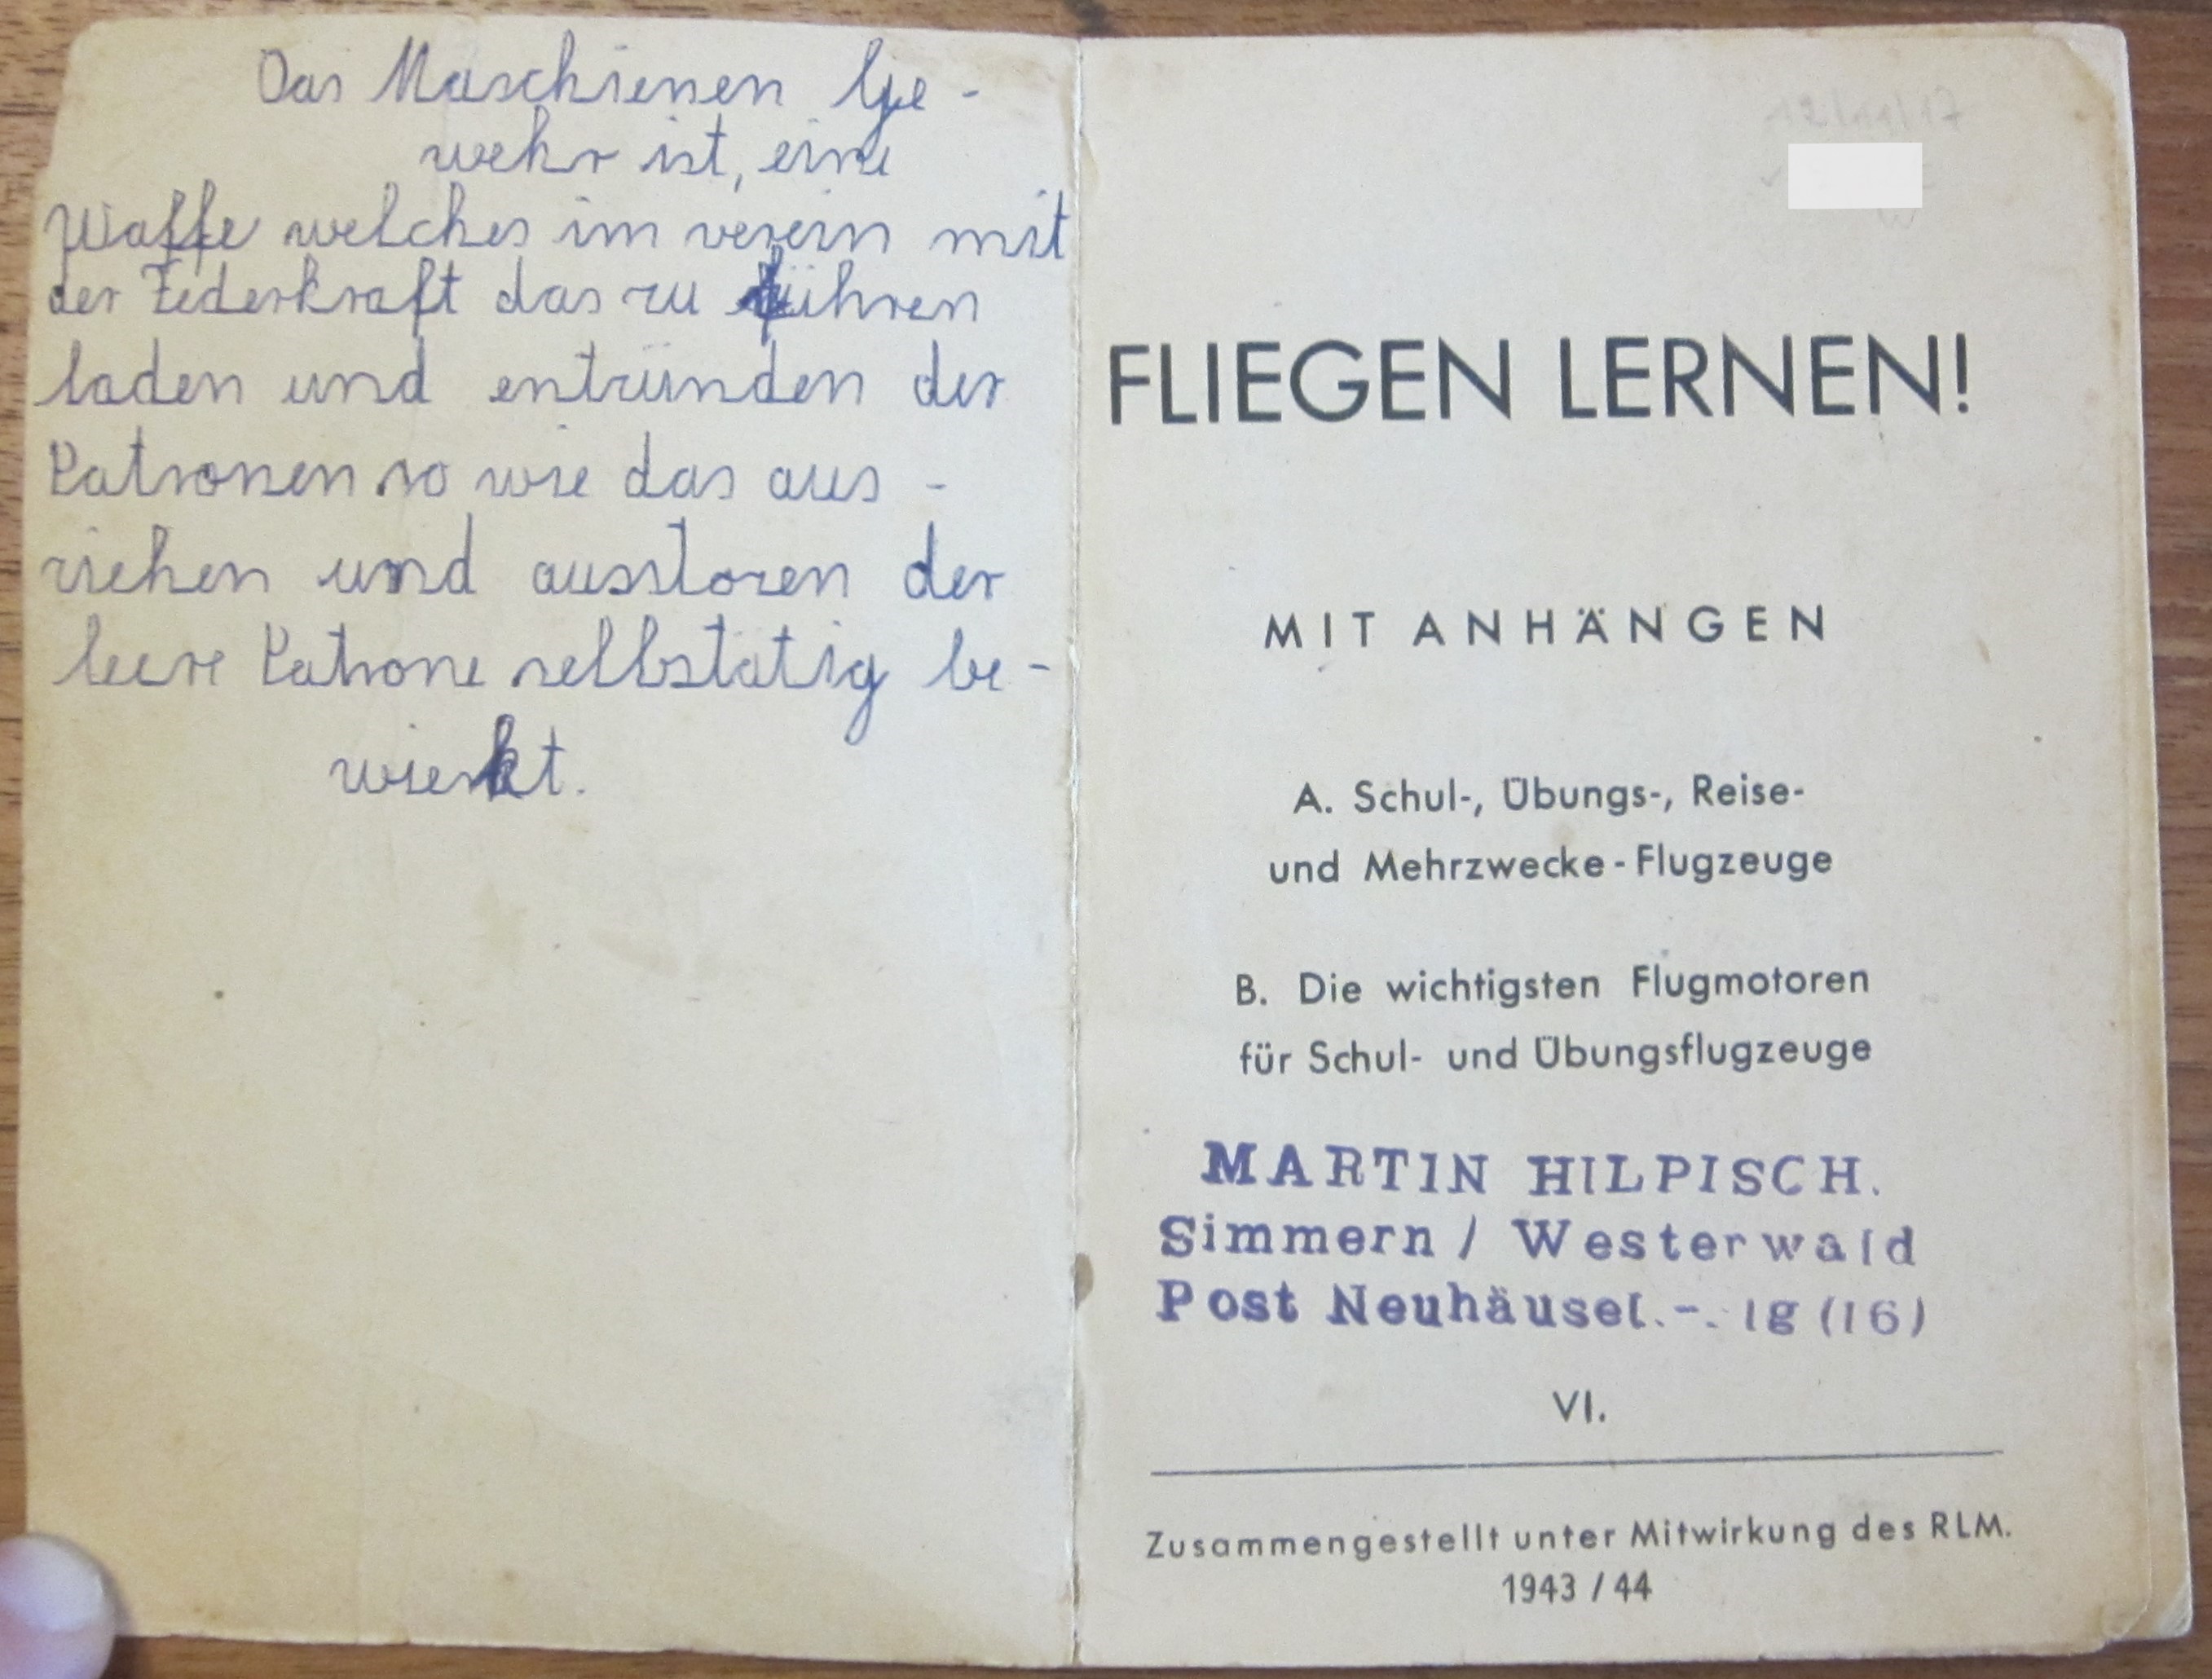 Das Maschienen Ge-
wehr ist, eine
Waffe welches im verein mit
der Federkraft das zu führen
laden und entzünden der
Patronen so wie das aus-
ziehen und ausstozen der
leere Patrone sellbstätig be-
wierkt.
FLIEGEN LERNEN!
MIT ANHÄNGEN
A. Schul-, Übungs-, Reise-
und Mehrzwecke-Flugzeuge
B. Die wichtigsten Flugmotoren
für Schul- und Übungsflugzeuge
MARTIN HILPISCH.
Simmern / Westerwald
Post Neuhäusel.-. 1g (16)
VI.
Zusammengestellt unter Mitwirkung des RLM.
1943 / 44